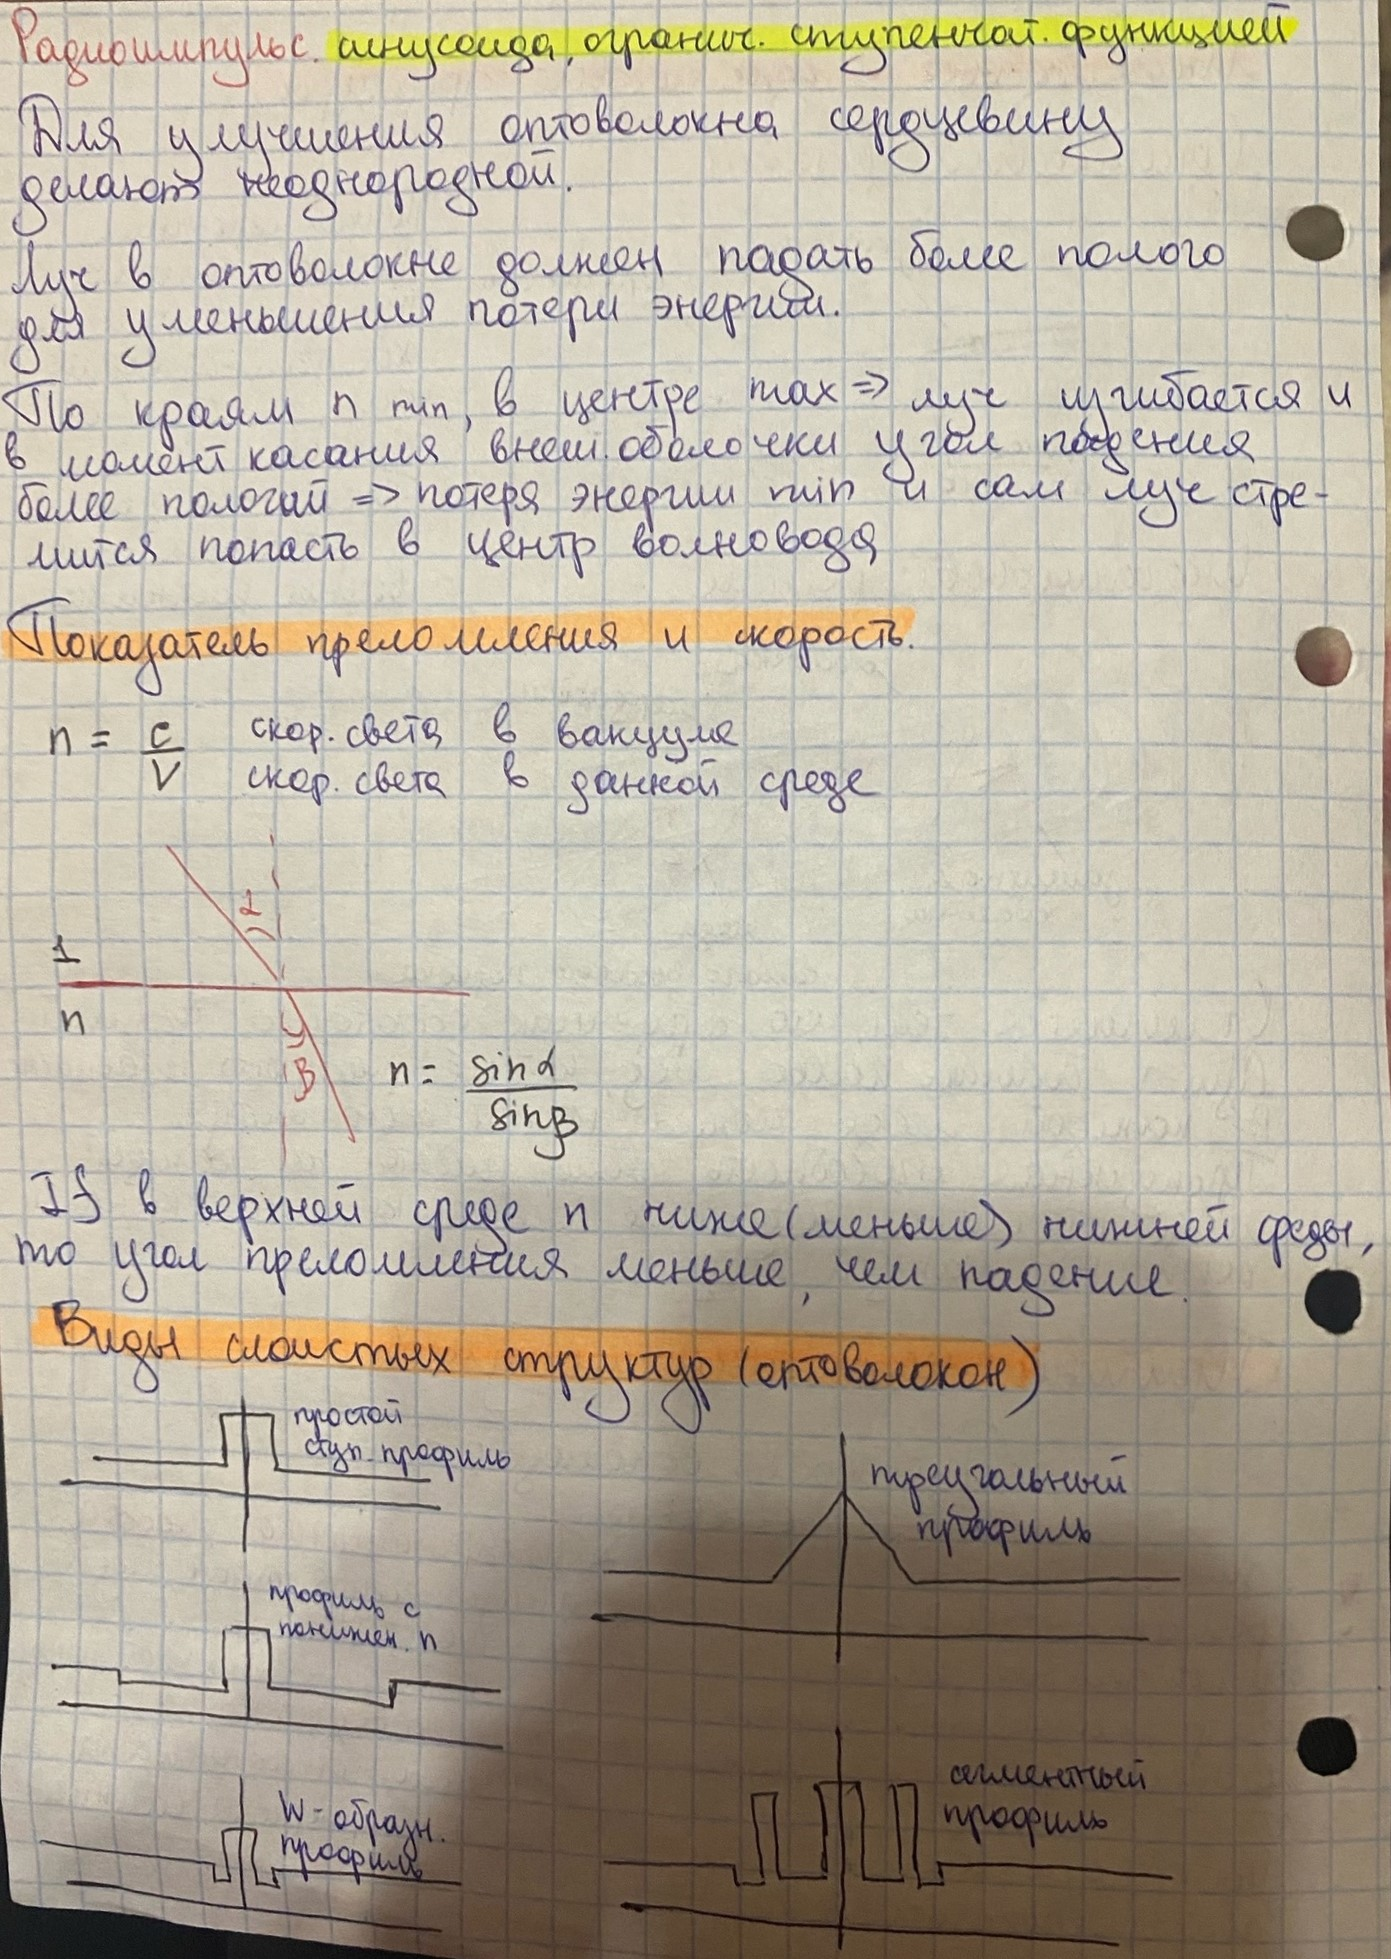 Радиоимпульс. синусоида, огранич. ступенчат. функцией
Для улучшения оптоволокна сердцевину
делают неоднородной.
Луч в оптоволокне должен падать более полого
для уменьшения потери энергии.
По краям n min, в центре max => луч изгибается и
в момент касания внеш. оболочки угол падения
более пологий => потеря энергии min и сам луч стре-
мится попасть в центр волновода
Показатель преломления и скорость.
n = c/V
скор. света в вакууме
скор. света в данной среде
α
1
n
β
n = sinα/sinβ
If в верхней среде n ниже (меньше) нижней среды,
то угол преломления меньше, чем падение.
Виды слоистых структур (оптоволокон)
простой
ступ. профиль
треугольный
профиль
профиль с
понижен. n
W-образн.
профиль
сегментный
профиль